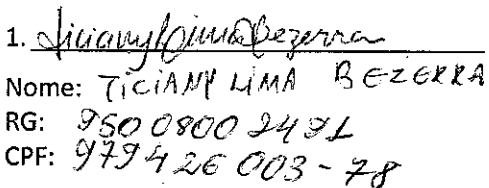 1. Ticiany Lima Bezerra
Nome: TICIANY LIMA BEZERRA
RG: 95008002491
CPF: 979426003-78